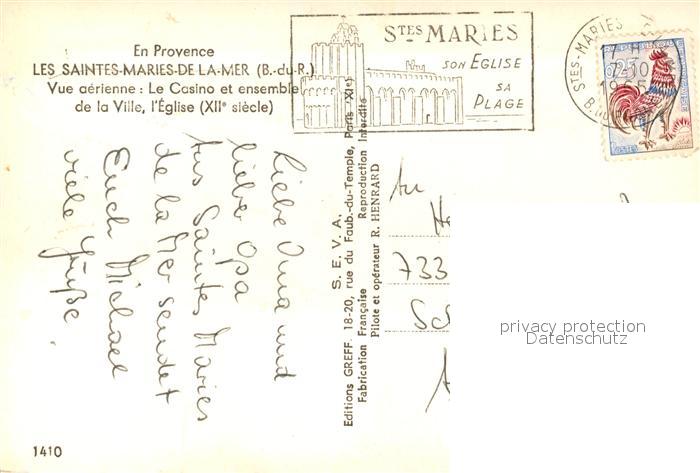 En Provence
LES SAINTES-MARIES-DE-LA-MER (B.-du-R.)
Vue aérienne : Le Casino et ensemble
de la Ville, l'Église (XIIe siècle)
STES MARIES
SON EGLISE
SA
PLAGE
STES-MARIES
POSTES
Liebe Oma und
lieber Opa
Aus Saintes Maries
de la Mer sendet
Euch Michael
viele Grüße
S. E. V. A.
Editions GREFF. 18-20, rue du Faub.-du-Temple, Paris (XIe)
Fabrication Française Reproduction Interdite
Pilote et opérateur R. HENRARD
An
He
733
Sc
privacy protection
Datenschutz
1410